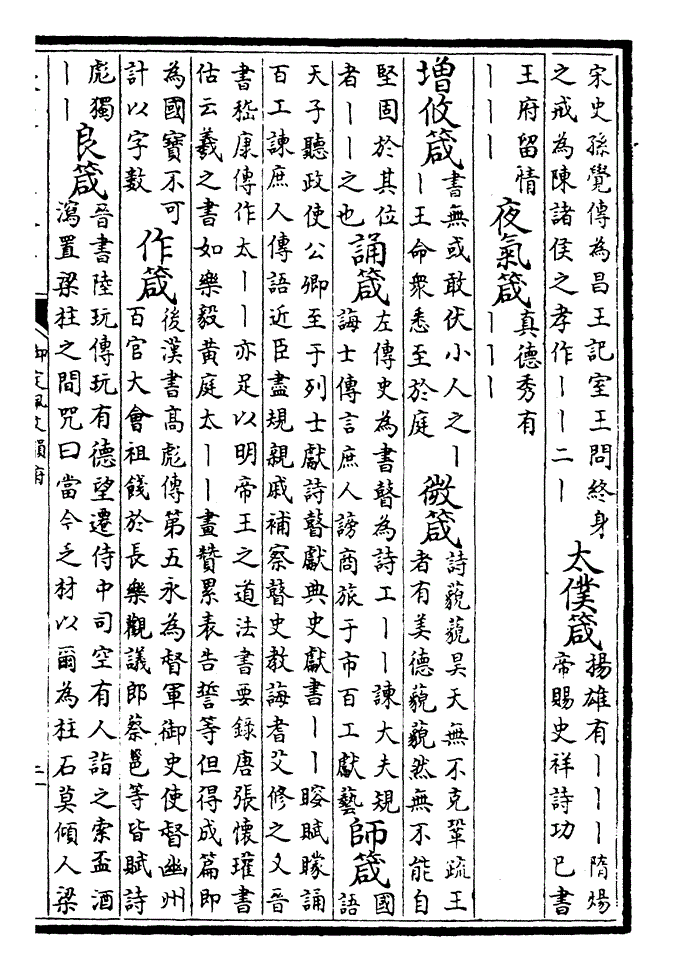 宋史孫覺傳為昌王記室王問終身
之戒為陳諸侯之孝作丨丨二丨
太僕箴
揚雄有丨丨丨隋煬
帝賜史祥詩功已書
王府留情
丨丨丨
夜氣箴
真德秀有
丨丨丨
增攸箴
書無或敢伏小人之丨
丨王命眾悉至於庭
微箴
詩藐藐昊天無不克鞏疏王
者有美德藐藐然無不能自
堅固於其位
者丨丨之也
誦箴
左傳史為書瞽為詩工丨丨諫大夫規
誨士傳言庶人謗商旅于市百工獻藝
師箴
國
語
天子聽政使公卿至于列士獻詩瞽獻典史獻書丨丨瞍賦矇誦
百工諫庶人傳語近臣盡規親戚補察瞽史教誨耆艾修之又晉
書嵇康傳作太丨丨亦足以明帝王之道法書要錄唐張懷瓘書
估云羲之書如樂毅黃庭太丨丨畫贊累表告誓等但得成篇即
為國寶不可
計以字數
作箴
後漢書高彪傳第五永為督軍御史使督幽州
百官大會祖餞於長樂觀議郎蔡邕等皆賦詩
彪獨
丨丨
良箴
晉書陸玩傳玩有德望遷侍中司空有人詣之索盃酒
瀉置梁柱之間咒曰當今乏材以爾為柱石莫傾人梁
御定佩文韻府